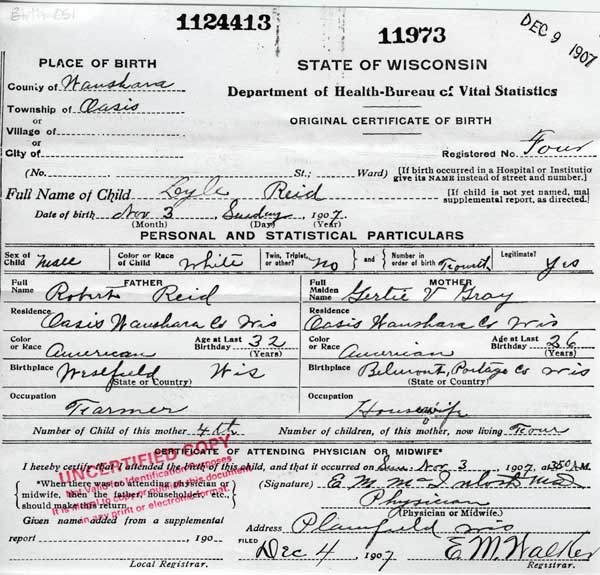 1124413
11973
DEC 9 1907
PLACE OF BIRTH
County of Waushara
Township of Oasis
or
Village of
or
City of
STATE OF WISCONSIN
Department of Health-Bureau of Vital Statistics
ORIGINAL CERTIFICATE OF BIRTH
Registered No. Four
(No. St.; Ward)
[If birth occurred in a Hospital or Institutio
give its NAME instead of street and number.]
Full Name of Child Loyle Reid
[If child is not yet named, mak
supplemental report, as directed.]
Date of birth Nov 3 Sunday 1907.
(Month) (Day) (Year)
PERSONAL AND STATISTICAL PARTICULARS
Sex of Child Male
Color or Race of Child White
Twin, Triplet, or other? No
and
Number in order of birth Fourth
Legitimate? Yes
FATHER
Full Name Robert Reid
Residence
Oasis Waushara Co Wis
Color or Race American
Age at Last Birthday 32
(Years)
Birthplace Westfield Wis
(State or Country)
Occupation
Farmer
MOTHER
Full Maiden Name Gertie V Gray
Residence
Oasis Waushara Co Wis
Color or Race American
Age at Last Birthday 26
(Years)
Birthplace Belmont, Portage Co Wis
(State or Country)
Occupation
Housewife
Number of Child of this mother 4th
Number of children, of this mother, now living Four
CERTIFICATE OF ATTENDING PHYSICIAN OR MIDWIFE*
I hereby certify that I attended the birth of this child, and that it occurred on Sun Nov 3 1907, at 350 A.M.
*When there was no attending physician or
midwife, then the father, householder, etc.,
should make this return
UNCERTIFIED COPY
Not Valid for Identification Purposes
It is illegal to copy or publish this document
in any print or electronic format.
(Signature) E. M.
Physician
(Physician or Midwife.)
Given name added from a supplemental
report 190
Local Registrar.
Address Plainfield Wis
FILED Dec 4 1907
E M Walker
Registrar.